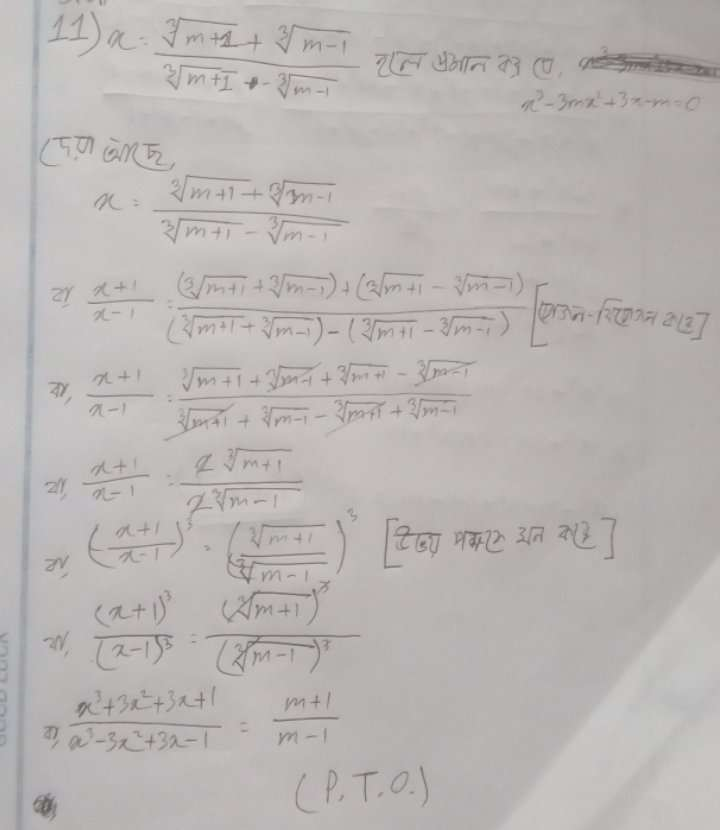 11) x = (∛(m+1) + ∛(m-1)) / (∛(m+1) - ∛(m-1)) হলে প্রমান কর যে,
x³-3mx²+3x-m=0
দেয়া আছে,
x = (∛(m+1) + ∛(m-1)) / (∛(m+1) - ∛(m-1))
বা, (x+1)/(x-1) = ((∛(m+1) + ∛(m-1)) + (∛(m+1) - ∛(m-1))) / ((∛(m+1) + ∛(m-1)) - (∛(m+1) - ∛(m-1))) [যোজন-বিয়োজন করে]
বা, (x+1)/(x-1) = (∛(m+1) + ∛(m-1) + ∛(m+1) - ∛(m-1)) / (∛(m+1) + ∛(m-1) - ∛(m+1) + ∛(m-1))
বা, (x+1)/(x-1) = (2∛(m+1)) / (2∛(m-1))
বা, ((x+1)/(x-1))³ = (∛(m+1) / ∛(m-1))³ [উভয় পক্ষকে ঘন করে]
বা, (x+1)³/(x-1)³ = (∛(m+1))³ / (∛(m-1))³
বা, (x³+3x²+3x+1)/(x³-3x²+3x-1) = (m+1)/(m-1)
(P.T.O.)